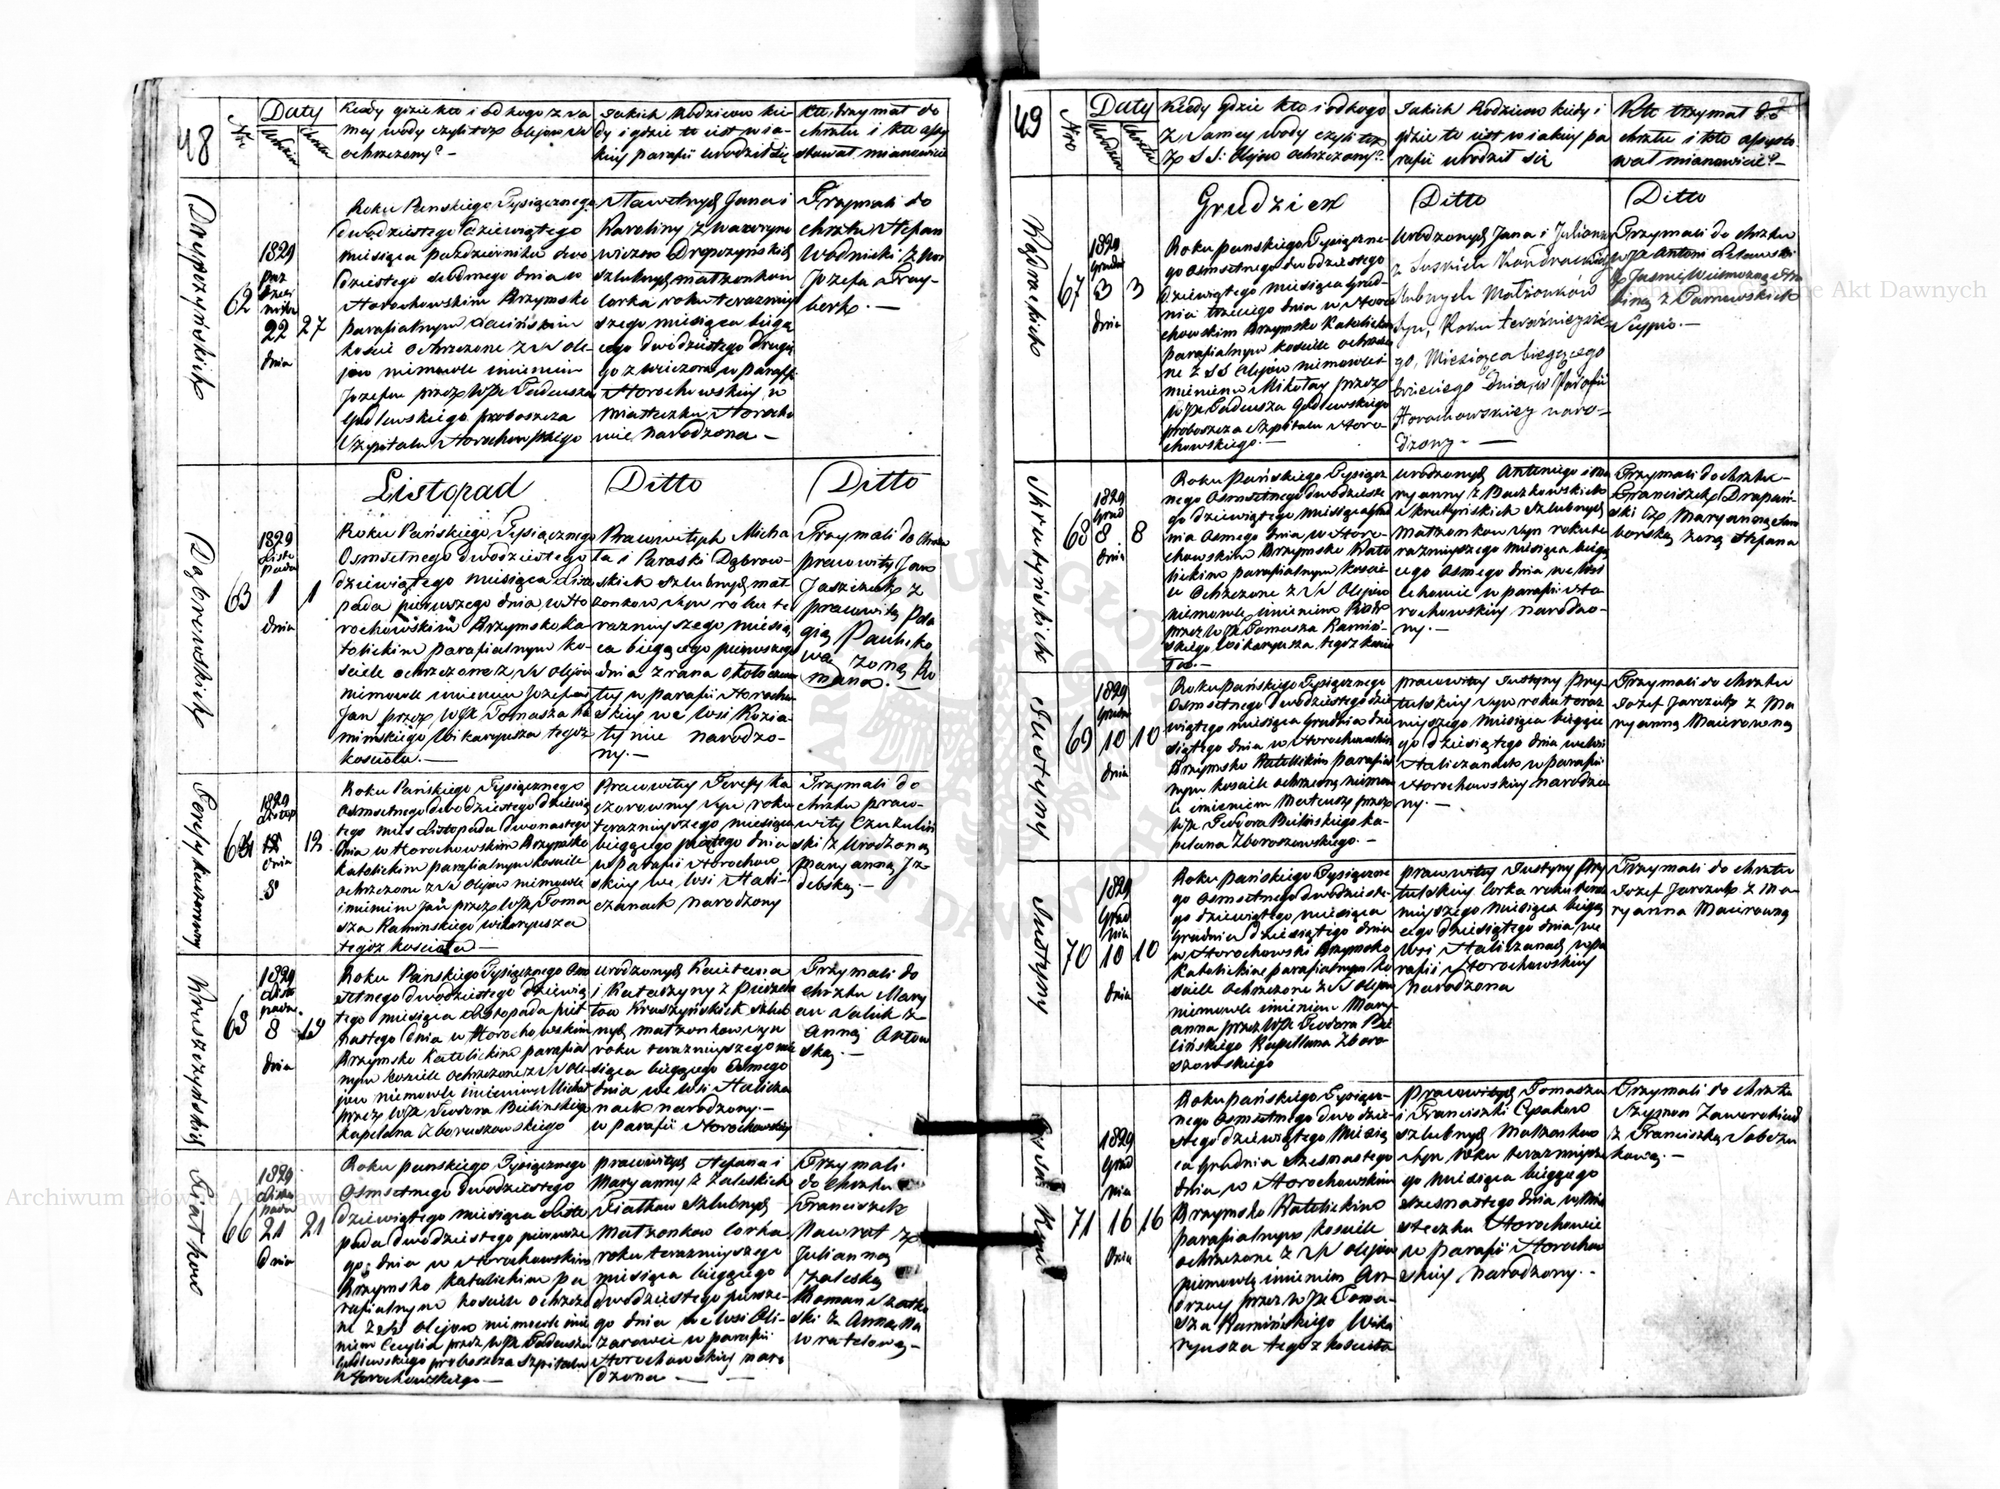 48
Nr.
Daty
Urodzenia
Chrztu
Kiedy gdzie kto i od kogo z sa
mey wody czyli też Olejów SS
ochrzczony? —
Jakich Rodziców kie-
dy i gdzie to iest w ia-
kiey parafii urodził się
Kto trzymał do
chrztu i kto assy
stował mianowicie
62
1829
paz
dzier
nika
22
dnia
27
Roku Pańskiego Tysiącznego
dwudziestego dziewiątego
miesiąca października dwu
dziestego siódmego dnia w
Horochowskim Rzymsko
parafialnym Łacińskim
kościele ochrzczone z SS Ole-
jów niemowle imieniem
Józefa przez WJX Tadeusza
Godlewskiego proboszcza
Szpitala Horochowskiego
Sławetnych Jana i
Karoliny z Wawrzyno
wiczów Drepczyńskich
szlubnych małżonków
córka roku teraźniey
szego miesiąca bieżą
cego dwudziestego drugie
go z wieczora w parafii
Horochowskiey w
Miasteczku Horocho
wie narodzona —
Trzymali do
chrztu Stefan
Wodnicki z
Jozefą
63
Dąbrowskich
1829
Listo
pada
1
dnia
1
Listopad
Roku Pańskiego Tysiącznego
Osmsetnego dwudziestego
dziewiątego miesiąca Listo
pada pierwszego dnia w Ho
rochowskim Rzymsko Ka
tolickim parafialnym ko-
ściele ochrzczone z SS Olejów
niemowle imieniem Józef
Jan przez WJX Tomasza Ka
mińskiego Wikaryusza tegoż
kościoła. —
Ditto
Pracowitych Micha
ła i Paraski Dąbrow-
skich szlubnych mał
żonków syn roku te
raźnieyszego miesią
ca bieżącego pierwszego
dnia z rana około
w parafii Horocho
skiey we wsi Kozia
tynie narodzo-
ny. —
Ditto
Trzymali do Chrztu
pracowity Jan
Jaszczuk z
pracowitą Pela
gią Pawluko
wą żoną Ro
mana. —
64
1829
Listop
12
dnia
8
12
Roku Pańskiego Tysiącznego
Osmsetnego dwudziestego dziewią
tego mies Listopada dwonastego
dnia w Horochowskim Rzymsko
Katolickim parafialnym kościele
ochrzczone z SS Olejów niemowle
imieniem Jan przez WJX Toma
sza Kamińskiego wikaryusza
tegoż kościoła —
Pracowitey Teressy Ka
czorowney syn roku
teraźnieyszego miesiąca
bieżącego piątego dnia
w parafii Horochow
skiey we wsi Hali-
czanach narodzony
Trzymali do
chrztu praco-
wity
ski z Urodzoną
Maryanną Iz
debską. —
Kruszczyńskich
1829
Listo
pada
8
dnia
15
Roku Pańskiego Tysiącznego Osm
setnego dwudziestego dziewią
tego miesiąca Listopada pięt
nastego dnia w Horochowskim
Rzymsko Katolickim parafial
nym kościele ochrzczone z SS Ole-
jów niemowle imieniem Michał
przez WJX Teodora Bielińskiego
kapelana Zboroszowskiego
Urodzonych Kaietana
i Katarzyny z
Kruszyńskich szlub
nych małżonków syn
roku teraźnieyszego mie
siąca bieżącego osmego
dnia we wsi Halicza
nach narodzony. —
w parafii Horochowskiey
Trzymali do
chrztu Mary
an z
Anną Antow
ską. —
Fiałków
66
1829
Listo
pada
21
dnia
21
Roku Pańskiego Tysiącznego
Osmsetnego dwudziestego
dziewiątego miesiąca Listo
pada dwudziestego pierwsze
go dnia w Horochowskim
Rzymsko katolickim pa
rafialnym kościele ochrzczo
ne z SS Olejów niemowle imie
niem Cecylia przez WJX Tadeusza
Godlewskiego proboszcza Szpitala
Horochowskiego —
pracowitych Stefana i
Maryanny z Zaleskich
Fiałków szlubnych
Małżonków córka
roku teraźnieyszego
miesiąca bieżącego
dwudziestego pierwsze-
go dnia we wsi Oli-
zarowie w parafii
Horochowskiey naro
dzona —
Trzymali
do chrztu
Franciszek
Nawrot z
Julianną
Zaleską
Roman
ski z Anną Na
wrotową —
49
Nro
Daty
Urodzenia
Chrztu
Kiedy gdzie kto i od kogo
z samey wody czyli też
z SS: Olejów ochrzczony? —
Jakich Rodziców kiedy i
gdzie to iest w iakiey pa
rafii urodził się
Kto trzymał do
chrztu i kto assysto
wał mianowicie? —
67
1829
Grudnia
3
dnia
3
Grudzień
Roku pańskiego Tysiączne-
go Osmsetnego dwudziestego
dziewiątego miesiąca Grud-
nia trzeciego dnia w Horo
chowskim Rzymsko Katolickim
parafialnym kościele ochrzczo
ne z SS Olejów niemowle i
mieniem Mikołay przez
WJX Tadeusza Godlewskiego
proboszcza Szpitala Horo-
chowskiego. —
Ditto
Urodzonych Jana i Julianny
z
Szlubnych Małżonków
Syn, Roku teraźnieysze-
go, Miesiąca bieżącego
trzeciego Dnia, w Parafii
Horochowskiey naro-
dzony. —
Ditto
Trzymali do chrztu
WJX Antoni
z Jaśnie Wielmożną
z Tarnowskich
Scypio. —
68
1829
Grud
8
dnia
8
Roku Pańskiego Tysiącz
nego Osmsetnego dwudzieste
go dziewiątego miesiąca Grud
nia Osmego dnia w Horo-
chowskim Rzymsko Kato
lickim parafialnym koscie
le ochrzczone z SS Olejów
niemowle imieniem
przez WJX Tomasza Kamiń-
skiego Wikaryusza tegoż kościo
ła. —
Urodzonych Antoniego i Ma
ryanny z Baczkowskich
Skrutyńskich szlubnych
Małżonków syn roku te
raźnieyszego miesiąca bieżą
cego Osmego dnia we wsi
w parafii Ho
rochowskiey narodzo-
ny. —
Trzymali do chrztu
Franciszek Drapań-
ski z Maryanną
żoną Stefana
Justyny
69
1829
Grudnia
10
dnia
10
Roku Pańskiego Tysiącznego
Osmsetnego Dwudziestego dzie
wiątego miesiąca Grudnia dzie
siątego dnia w Horochowskim
Rzymsko Katolickim parafial
nym kościele ochrzczone niemow
le imieniem Mateusz przez
WJX Teodora Bielińskiego ka-
pelana Zboroszowskiego. —
Pracowitey Justyny Przy
tulskiey syn roku teraź
nieyszego miesiąca bieżące
go dziesiątego dnia we wsi
Haliczanach w parafii
Horochowskiey narodzo
ny. —
Trzymali do chrztu
Józef Jarczuk z Ma
ryanną Maiurową
Justyny
70
1829
Grud
nia
10
dnia
10
Roku Pańskiego Tysiączne
go Osmsetnego dwudzieste-
go dziewiątego miesiąca
Grudnia dziesiątego dnia
w Horochowski Rzymsko
Katolickim parafialnym ko
ściele ochrzczone z SS Olejów
niemowle imieniem Mary
anna przez WJX Teodora Bie
lińskiego Kapellana Zboro
szowskiego
Pracowitey Justyny Przy
tulskiey córka roku teraź
nieyszego miesiąca bieżą
cego dziesiątego dnia we
wsi Haliczanach w pa
rafii Horochowskiey
Narodzona
Trzymali do chrztu
Józef Jarczuk z Ma-
ryanna Maiurową
71
1829
Grud
nia
16
dnia
16
Roku Pańskiego Tysiącz-
nego Osmsetnego dwudzie-
stego dziewiątego Miesią
ca Grudnia szesnastego
dnia w Horochowskim
Rzymsko Katolickim
parafialnym kościele
ochrzczone z SS Olejów
niemowle imieniem An
drzey przez WJX Toma-
sza Kamińskiego Wika
ryusza tegoż kościoła
Pracowitych Tomasza
i Franciszki Cysaków
szlubnych Małżonków
Syn Roku teraźnieysze
go miesiąca bieżącego
szesnastego dnia w Mia
steczku Horochowie
w Parafii Horochow
skiey Narodzony. —
Trzymali do chrztu
Szymon
z Franciszką
kową. —
Archiwum Główne Akt Dawnych
Archiwum Główne Akt Dawnych